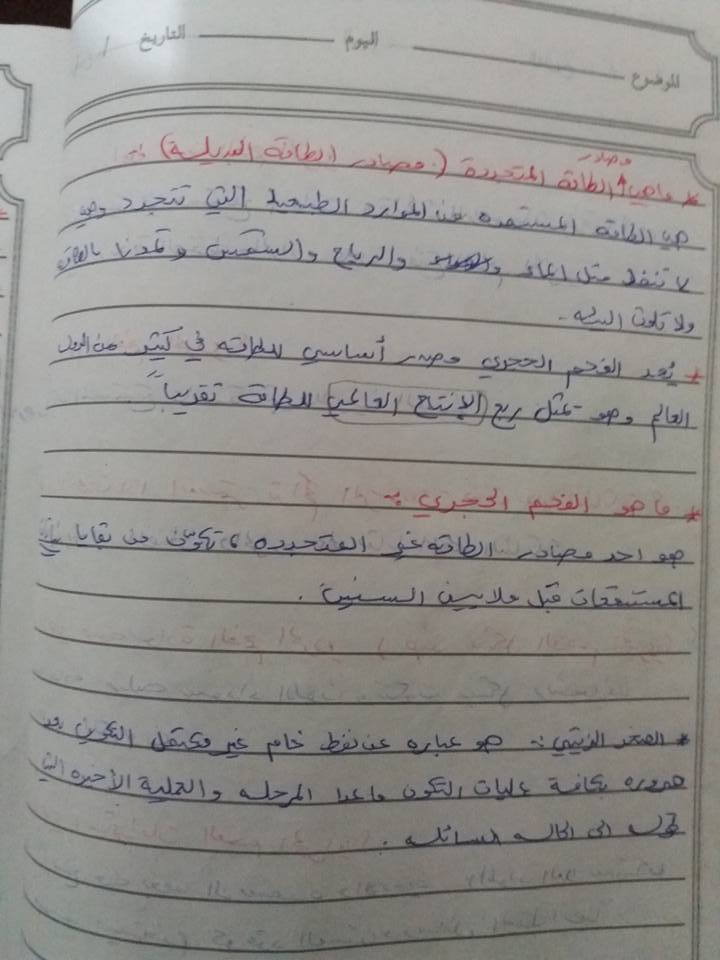 الموضوع اليوم التاريخ
مصادر
* ماهي الطاقة المتجددة (مصادر الطاقة البديلة) :-
هي الطاقه المستمده من الموارد الطبيعية التي تتجدد وهي
لا تنفذ مثل الماء والرياح والشمس وتمدنا بالطاقه
ولا تلوث البيئه .
* يُعد الفحم الحجري مصدر أساسي للطاقه في كثير من الدول
العالم وهو يمثل ربع الإنتاج العالمي للطاقة تقريباً
* ما هو الفحم الحجري :-
هو احد مصادر الطاقه غير المتجدده ، تكون من بقايا
المستنقعات قبل ملايين السنين .
* الصخر الزيتي :- هو عباره عن نفط خام غير مكتمل التكوين بعد
مروره بكافة عمليات التكون ماعدا المرحله والعملية الأخيره التي
الى الحاله السائله .